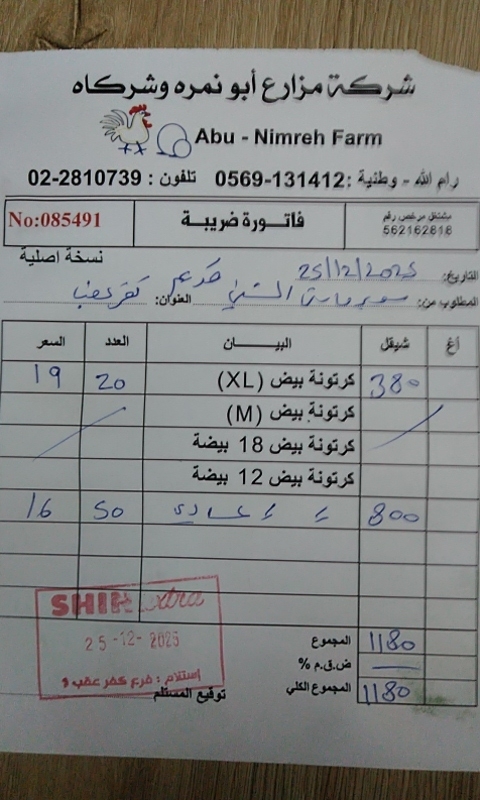 شركة مزارع أبو نمره وشركاه
Abu - Nimreh Farm
رام الله - وطنية : 0569-131412 تلفون : 02-2810739
مشتغل مرخص رقم
562162818
فاتورة ضريبة
No:085491
نسخة اصلية
التاريخ: 25/12/2025
المطلوب من: سوبرماركت الشني العنوان: كفر عقب
أغ شيقل البيـــان العدد السعر
380 كرتونة بيض (XL) 20 19
كرتونة بيض (M)
كرتونة بيض 18 بيضة
كرتونة بيض 12 بيضة
800 عادي 50 16
المجموع 1180
ض.ق.م %
المجموع الكلي 1180
توقيع المستلم
SHINI extra
25-12-2025
استلام : فرع كفر عقب